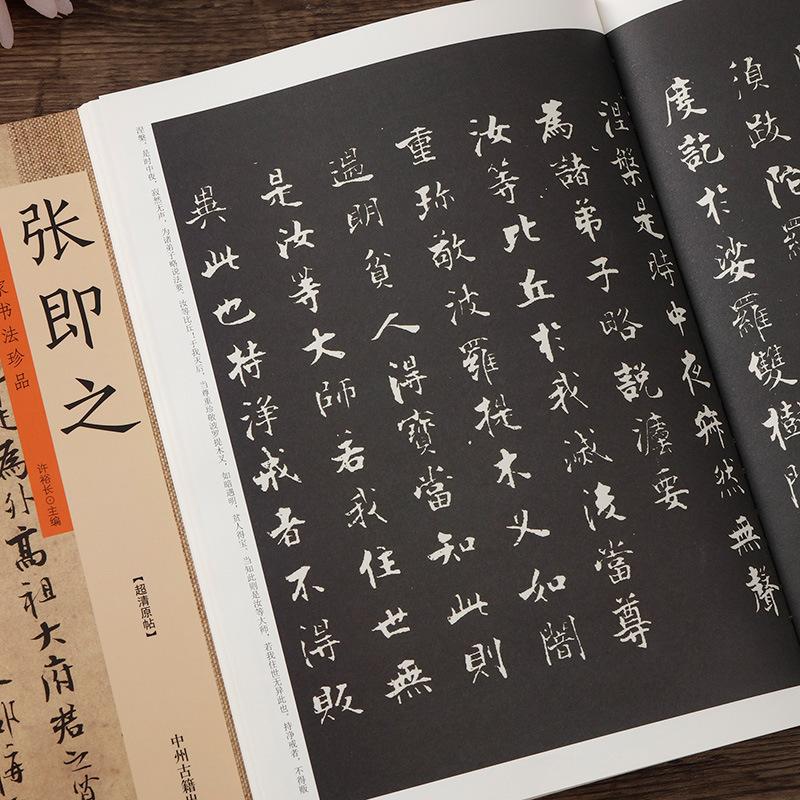 张即之
家书法珍品
许裕长⊙主编
【超清原帖】
中州古籍出
為外高祖大府君之
須跋陀羅
度訖於娑羅雙樹間
涅槃是時中夜寂然無聲
為諸弟子略說灋要
汝等比丘於我滅後當尊
重珎敬波羅提木叉如闇
遇明貧人得寶當知此則
是汝等大師若我住世無
異此也持淨戒者不得販
涅槃，是时中夜，寂然无声，为诸弟子略说法要，汝等比丘！于我灭后，当尊重珍敬波罗提木叉，如暗遇明，贫人得宝，当知此则是汝等大师，若我住世无异此也，持净戒者，不得贩